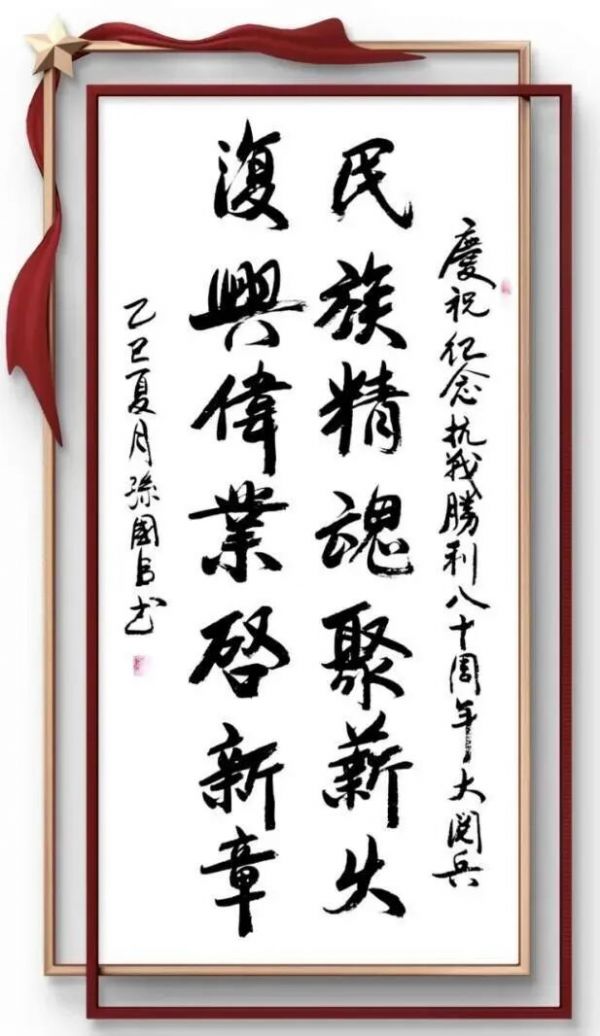 慶祝纪念抗戰勝利八十周年大閱兵
民族精魂聚薪火
復興偉業啓新章
乙巳夏月孫國书